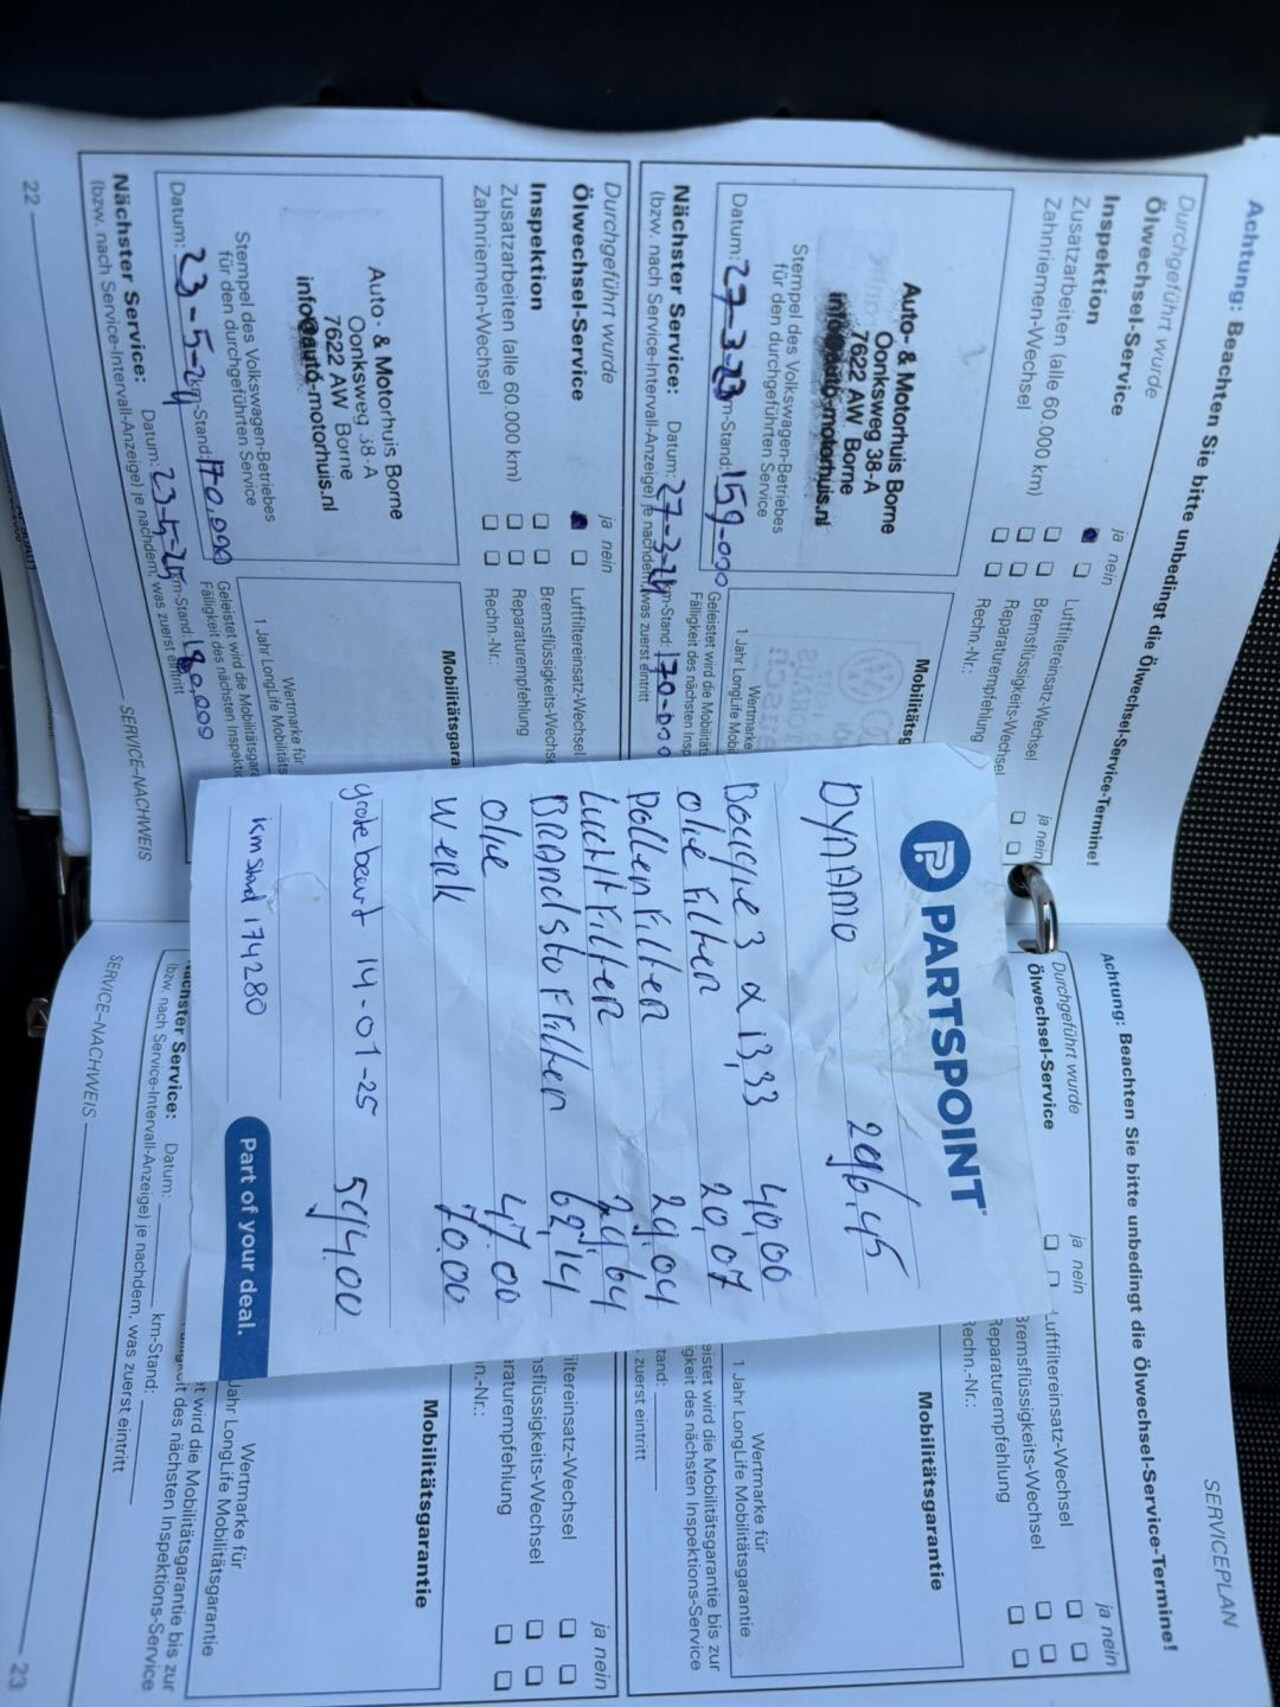 Achtung: Beachten Sie bitte unbedingt die Ölwechsel-Service-Termine!
Durchgeführt wurde
Ölwechsel-Service
Inspektion
Zusatzarbeiten (alle 60.000 km)
Zahnriemen-Wechsel
ja nein
Luftfiltereinsatz-Wechsel
Bremsflüssigkeits-Wechsel
Reparaturempfehlung
Rechn.-Nr.:
ja nein
Auto- & Motorhuis Borne
Oonksweg 38-A
7622 AW Borne
info@auto-motorhuis.nl
Stempel des Volkswagen-Betriebes
für den durchgeführten Service
Datum: 27-3-23 km-Stand: 159-000
Nächster Service: Datum: 27-3-24 km-Stand: 170-000
(bzw. nach Service-Intervall-Anzeige) je nachdem, was zuerst eintritt
Mobilitätsg
Wertmarke
1 Jahr LongLife Mobil
Geleistet wird die Mobilität
Fälligkeit des nächsten Insp
Durchgeführt wurde
Ölwechsel-Service
Inspektion
Zusatzarbeiten (alle 60.000 km)
Zahnriemen-Wechsel
ja nein
Luftfiltereinsatz-Wechsel
Bremsflüssigkeits-Wechse
Reparaturempfehlung
Rechn.-Nr.:
Auto- & Motorhuis Borne
Oonksweg 38-A
7622 AW Borne
info@auto-motorhuis.nl
Stempel des Volkswagen-Betriebes
für den durchgeführten Service
Datum: 23-5-24 km-Stand: 170.000
Nächster Service: Datum: 23-5-25 km-Stand: 180.000
(bzw. nach Service-Intervall-Anzeige) je nachdem, was zuerst eintritt
Mobilitätsgara
Wertmarke für
1 Jahr LongLife Mobilitäts
Geleistet wird die Mobilitätsgar
Fälligkeit des nächsten Inspekti
22 SERVICE-NACHWEIS
PARTSPOINT
DYNAMO 296,45
Bougie 3 a 13,33 40,00
olie Filter 20,07
Pollen Filter 29,04
Lucht Filter 29,64
Brandstof Filter 62,14
olie 47,00
Werk 70,00
grote beurt 14-01-25 594,00
km stand 174280
Part of your deal.
SERVICEPLAN
Achtung: Beachten Sie bitte unbedingt die Ölwechsel-Service-Termine!
Durchgeführt wurde
Ölwechsel-Service
ja nein
Luftfiltereinsatz-Wechsel
Bremsflüssigkeits-Wechsel
Reparaturempfehlung
Rechn.-Nr.:
ja nein
Mobilitätsgarantie
Wertmarke für
1 Jahr LongLife Mobilitätsgarantie
eistet wird die Mobilitätsgarantie bis zur
gkeit des nächsten Inspektions-Service
tand:
zuerst eintritt
iltereinsatz-Wechsel
nsflüssigkeits-Wechsel
araturempfehlung
n.-Nr.:
ja nein
Mobilitätsgarantie
Wertmarke für
Jahr LongLife Mobilitätsgarantie
t wird die Mobilitätsgarantie bis zur
it des nächsten Inspektions-Service
Nächster Service: Datum: km-Stand:
(bzw. nach Service-Intervall-Anzeige) je nachdem, was zuerst eintritt
SERVICE-NACHWEIS 23